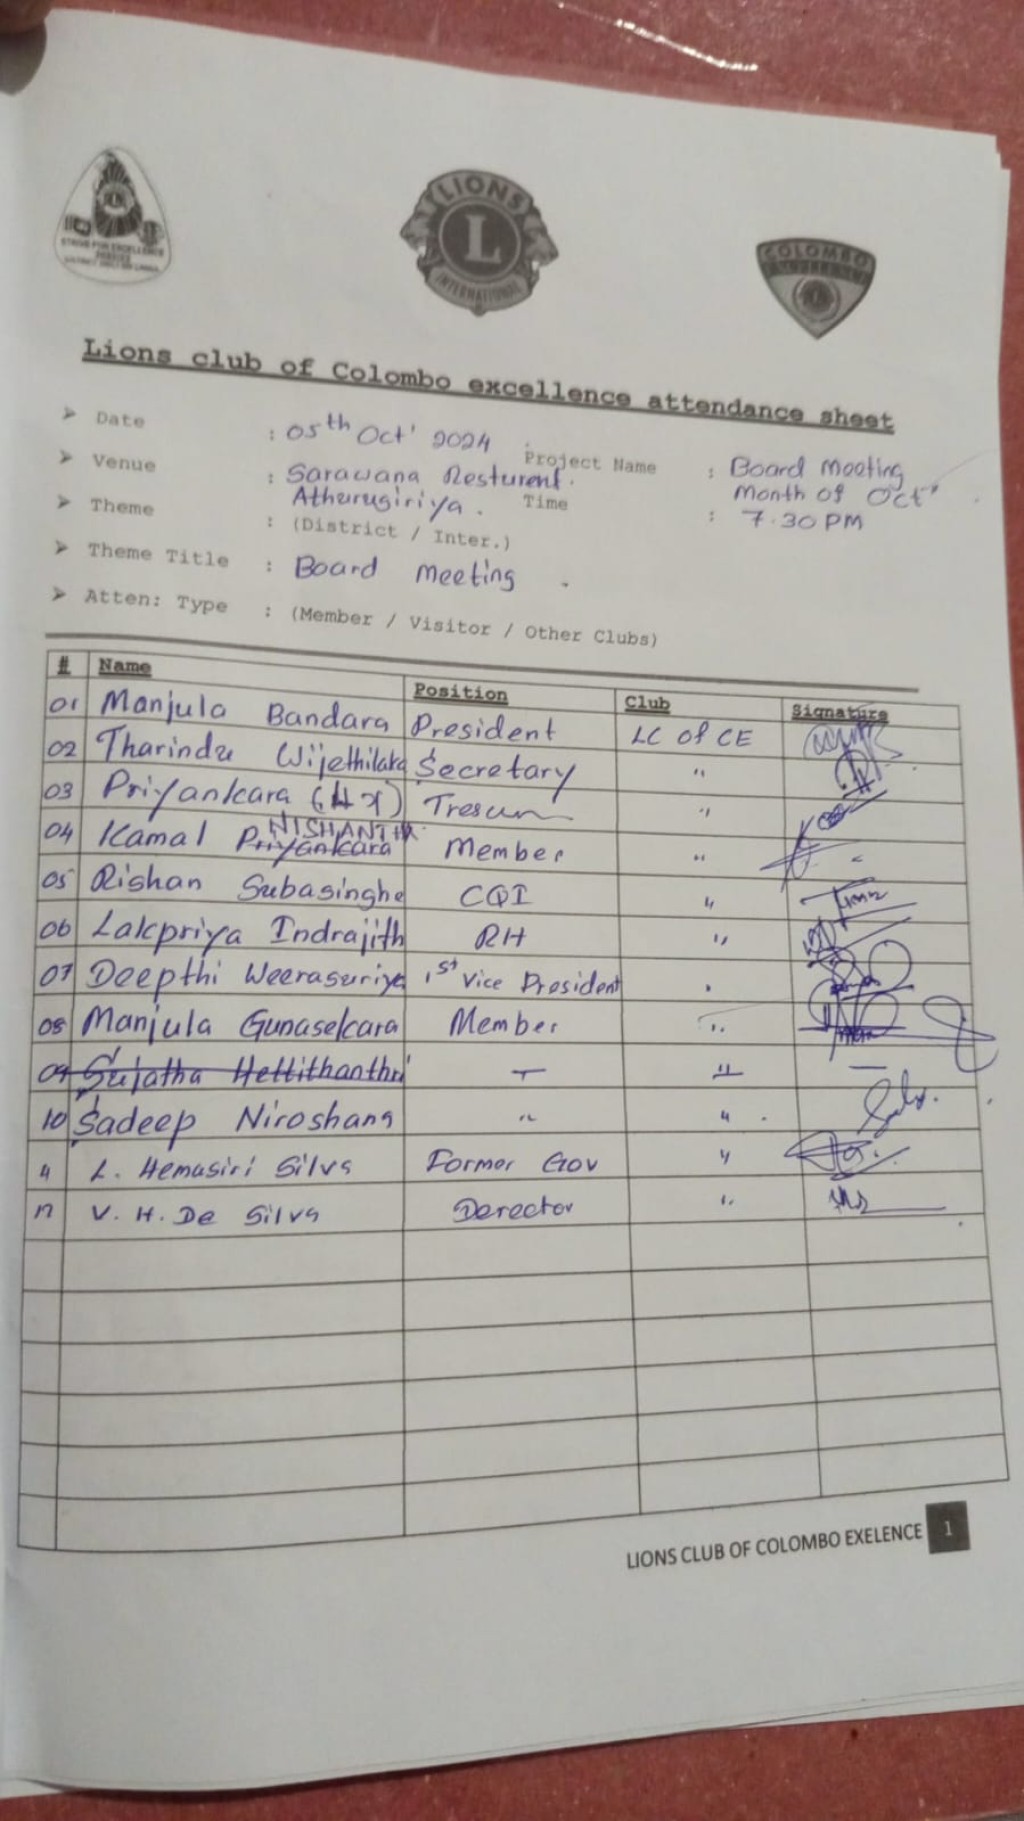 LIONS
L
INTERNATIONAL
COLOMBO
STRIVE FOR EXCELLENCE
Lions club of Colombo excellence attendance sheet
➤ Date : 05th Oct' 2024 Project Name : Board Meeting
Month of Oct'
➤ Venue : Sarawana Resturent.
Athurugiriya. Time : 7.30 PM
➤ Theme : (District / Inter.)
➤ Theme Title : Board meeting .
➤ Atten: Type : (Member / Visitor / Other Clubs)
# Name Position Club Signature
01 Manjula Bandara President LC of CE
02 Tharindu Wijethilaka Secretary "
03 Priyankara Tresur "
04 Kamal Priyankara NISHANTHA Member "
05 Rishan Subasinghe CQI "
06 Lakpriya Indrajith RH "
07 Deepthi Weerasuriya 1st Vice President "
08 Manjula Gunasekara Member "
09 Sujatha Hettithanthri - " -
10 Sadeep Niroshana " "
11 L. Hemasiri Silva Former Gov "
12 V. H. De Silva Derector "
LIONS CLUB OF COLOMBO EXELENCE 1